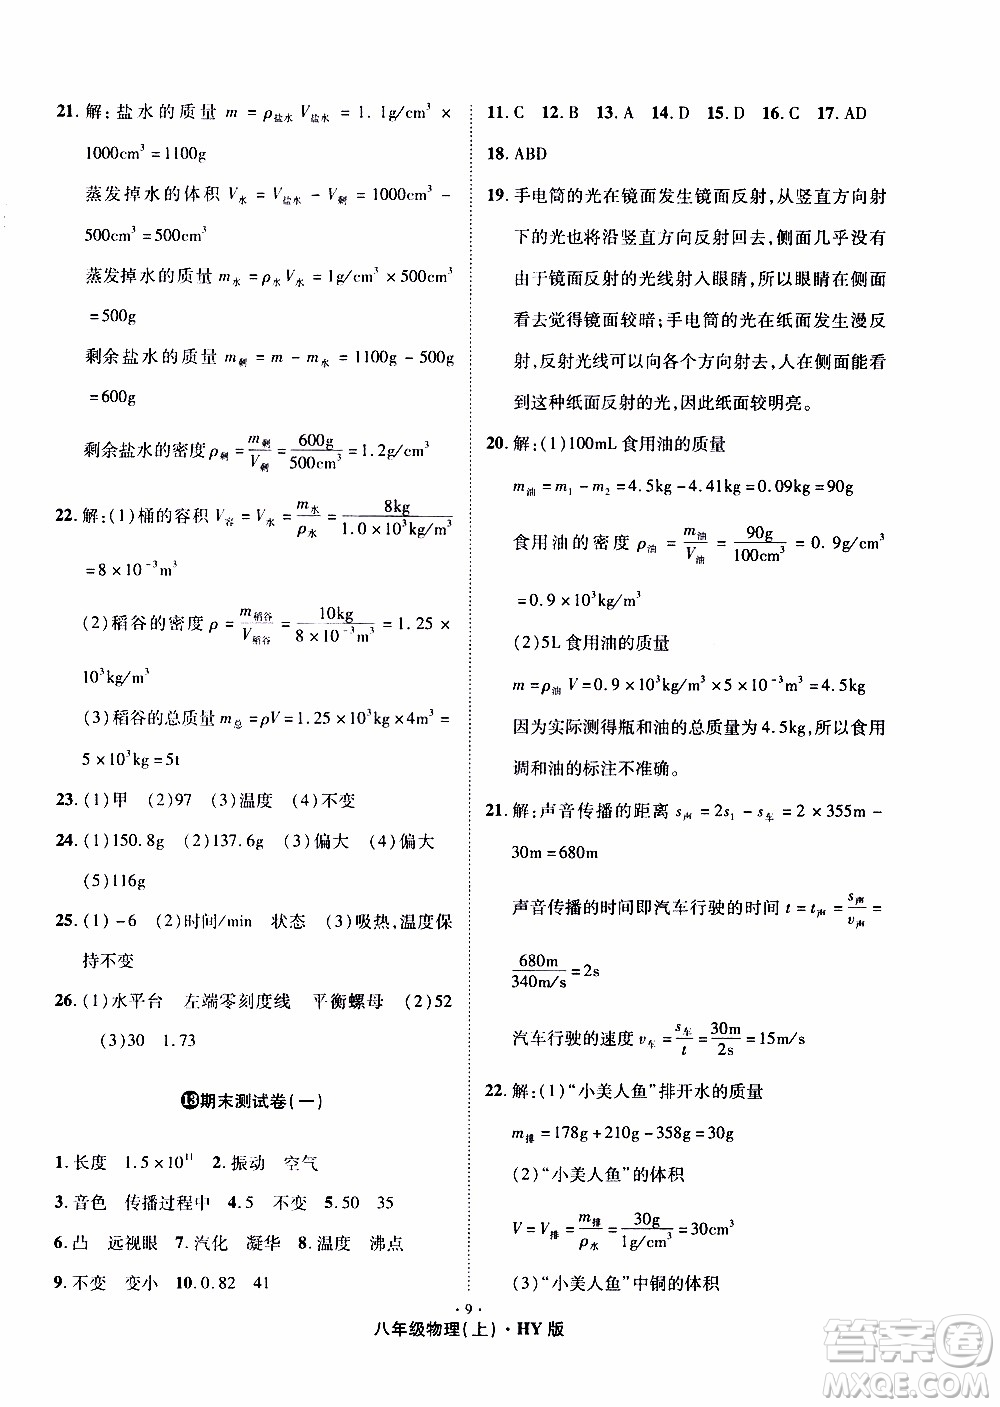 21. 解:盐水的质量 m = ρ盐水 V盐水 = 1. 1g/cm³ ×
1000cm³ = 1100g
蒸发掉水的体积 V水 = V盐水 - V剩 = 1000cm³ -
500cm³ = 500cm³
蒸发掉水的质量 m水 = ρ水 V水 = 1g/cm³ × 500cm³
= 500g
剩余盐水的质量 m剩 = m - m水 = 1100g - 500g
= 600g
剩余盐水的密度 ρ剩 = m剩/V剩 = 600g/500cm³ = 1.2g/cm³
22. 解:(1)桶的容积 V容 = V水 = m水/ρ水 = 8kg/1.0 × 10³kg/m³
= 8 × 10⁻³m³
(2)稻谷的密度 ρ = m稻谷/V稻谷 = 10kg/8 × 10⁻³m³ = 1.25 ×
10³kg/m³
(3)稻谷的总质量 m总 = ρV = 1.25 × 10³kg × 4m³ =
5 × 10³kg = 5t
23. (1)甲 (2)97 (3)温度 (4)不变
24. (1)150.8g (2)137.6g (3)偏大 (4)偏大
(5)116g
25. (1) -6 (2)时间/min 状态 (3)吸热,温度保
持不变
26. (1)水平台 左端零刻度线 平衡螺母 (2)52
(3)30 1.73
⓭期末测试卷(一)
1. 长度 1.5 × 10¹¹ 2. 振动 空气
3. 音色 传播过程中 4. 5 不变 5. 50 35
6. 凸 远视眼 7. 汽化 凝华 8. 温度 沸点
9. 不变 变小 10. 0.82 41
11. C 12. B 13. A 14. D 15. D 16. C 17. AD
18. ABD
19. 手电筒的光在镜面发生镜面反射,从竖直方向射
下的光也将沿竖直方向反射回去,侧面几乎没有
由于镜面反射的光线射入眼睛,因此眼睛在侧面
看去觉得镜面较暗;手电筒的光在纸面发生漫反
射,反射光线可以向各个方向射去,人在侧面能看
到这种纸面反射的光,因此纸面较明亮。
20. 解:(1)100mL 食用油的质量
m油 = m₁ - m₂ = 4.5kg - 4.41kg = 0.09kg = 90g
食用油的密度 ρ油 = m油/V油 = 90g/100cm³ = 0. 9g/cm³
= 0.9 × 10³kg/m³
(2)5L 食用油的质量
m = ρ油 V = 0.9 × 10³kg/m³ × 5 × 10⁻³m³ = 4.5kg
因为实际测得瓶和油的总质量为 4.5kg,所以食用
调和油的标注不准确。
21. 解:声音传播的距离 s声 = 2s₁ - s车 = 2 × 355m -
30m = 680m
声音传播的时间即汽车行驶的时间 t = t声 = s声/v声 =
680m/340m/s = 2s
汽车行驶的速度 v车 = s车/t = 30m/2s = 15m/s
22. 解:(1)“小美人鱼”排开水的质量
m排 = 178g + 210g - 358g = 30g
(2)“小美人鱼”的体积
V = V排 = m排/ρ水 = 30g/1g/cm³ = 30cm³
(3)“小美人鱼”中铜的体积
· 9 ·
八年级物理(上)·HY 版
答案圈
MXQE.COM